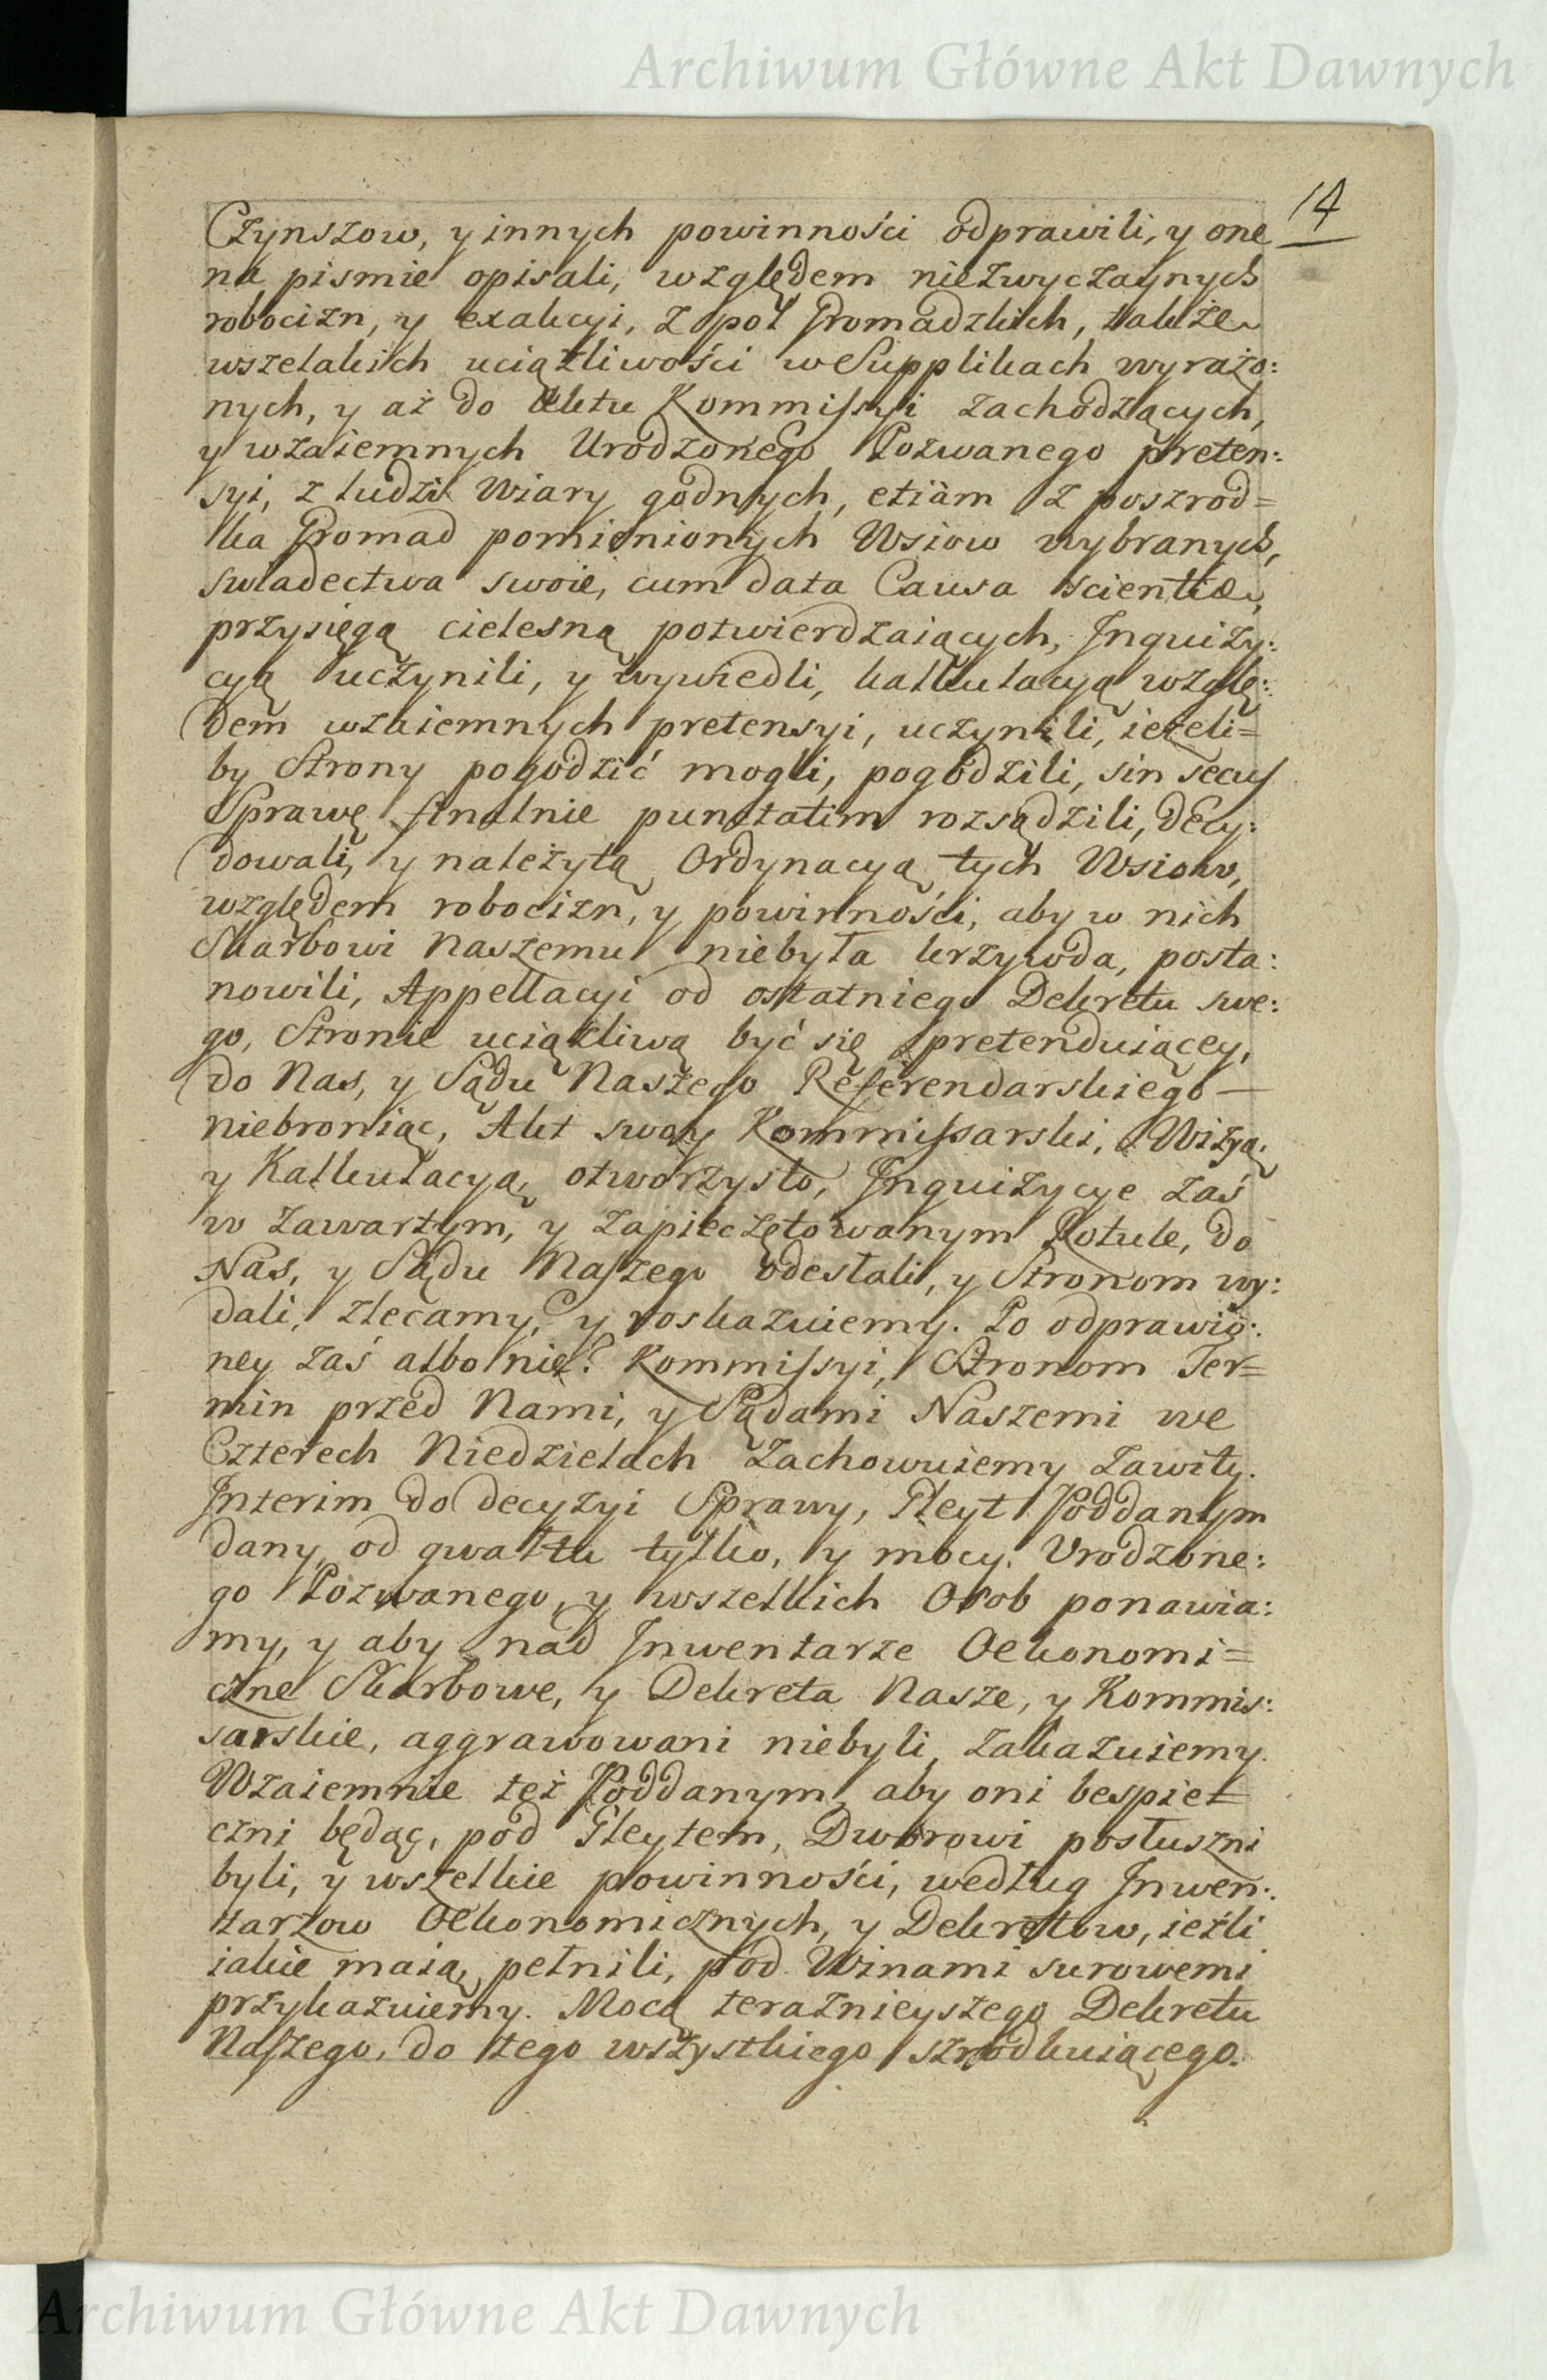 Archiwum Główne Akt Dawnych
14
Czynszow, y innych powinności odprawili, y one
na pismie opisali, względem niezwyczaynych
robocizn, y exakcyi, z pol Gromadzkich, także
wszelakich uciążliwości w Supplikach wyrażo:
nych, y aż do Aktu Kommissyi zachodzących,
y wzaiemnych Urodzonego Pozwanego preten:
syi, z ludzi Wiary godnych, etiàm z poszrod=
ka Gromad pomienionych Wsiow wybranych,
swiadectwa swoie, cum data Causa scientiæ,
przysięgą cielesną potwierdzaiących, Inquizy:
cyą uczynili, y wywiedli, kalkulacyą wzglę:
dem wzaiemnych pretensyi, uczynili, ieżeli=
by Strony pogodzić mogli, pogodzili, sin secus
Sprawę finalnie punctatim rozsądzili, decy:
dowali, y należytą Ordynacyą tych Wsiow,
względem robocizn, y powinności, aby w nich
Skarbowi Naszemu niebyła krzywda, posta:
nowili, Appellacyi od ostatniego Dekretu swe:
go, Stronie uciążliwą być się pretenduiącey,
do Nas, y Sądu Naszego Referendarskiego —
niebroniąc, Akt swoy Kommissarski, Wizyą,
y Kalkulacyą, otworzysto, Inquizycye zaś
w zawartym, y zapieczętowanym Rotule, do
Nas, y Sądu Naszego odesłali, y Stronom wy:
dali, zlecamy, y roskazuiemy. Po odprawio:
ney zaś albo nie? Kommissyi, Stronom Ter=
min przed Nami, y Sądami Naszemi we
Czterech Niedzielach zachowuiemy zawity.
Interim do decyzyi Sprawy, Gleyt Poddanym
dany, od gwałtu tylko, y mocy. Urodzone:
go Pozwanego, y wszelkich Osob ponawia:
my, y aby nad Inwentarze Oekonomi=
czne Skarbowe, y Dekreta Nasze, y Kommis:
sarskie, aggrawowani niebyli, zakazuiemy.
Wzaiemnie też Poddanym, aby oni bespie=
czni będąc, pod Gleytem, Dworowi posłuszni
byli, y wszelkie powinności, według Inwen:
tarzow Oekonomicznych, y Dekretow, ieźli
iakie maią, pełnili, pod Winami surowemi
przykazuiemy. Mocą teraznieyszego Dekretu
Naszego, do tego wszystkiego szrodkuiącego.
Archiwum Główne Akt Dawnych